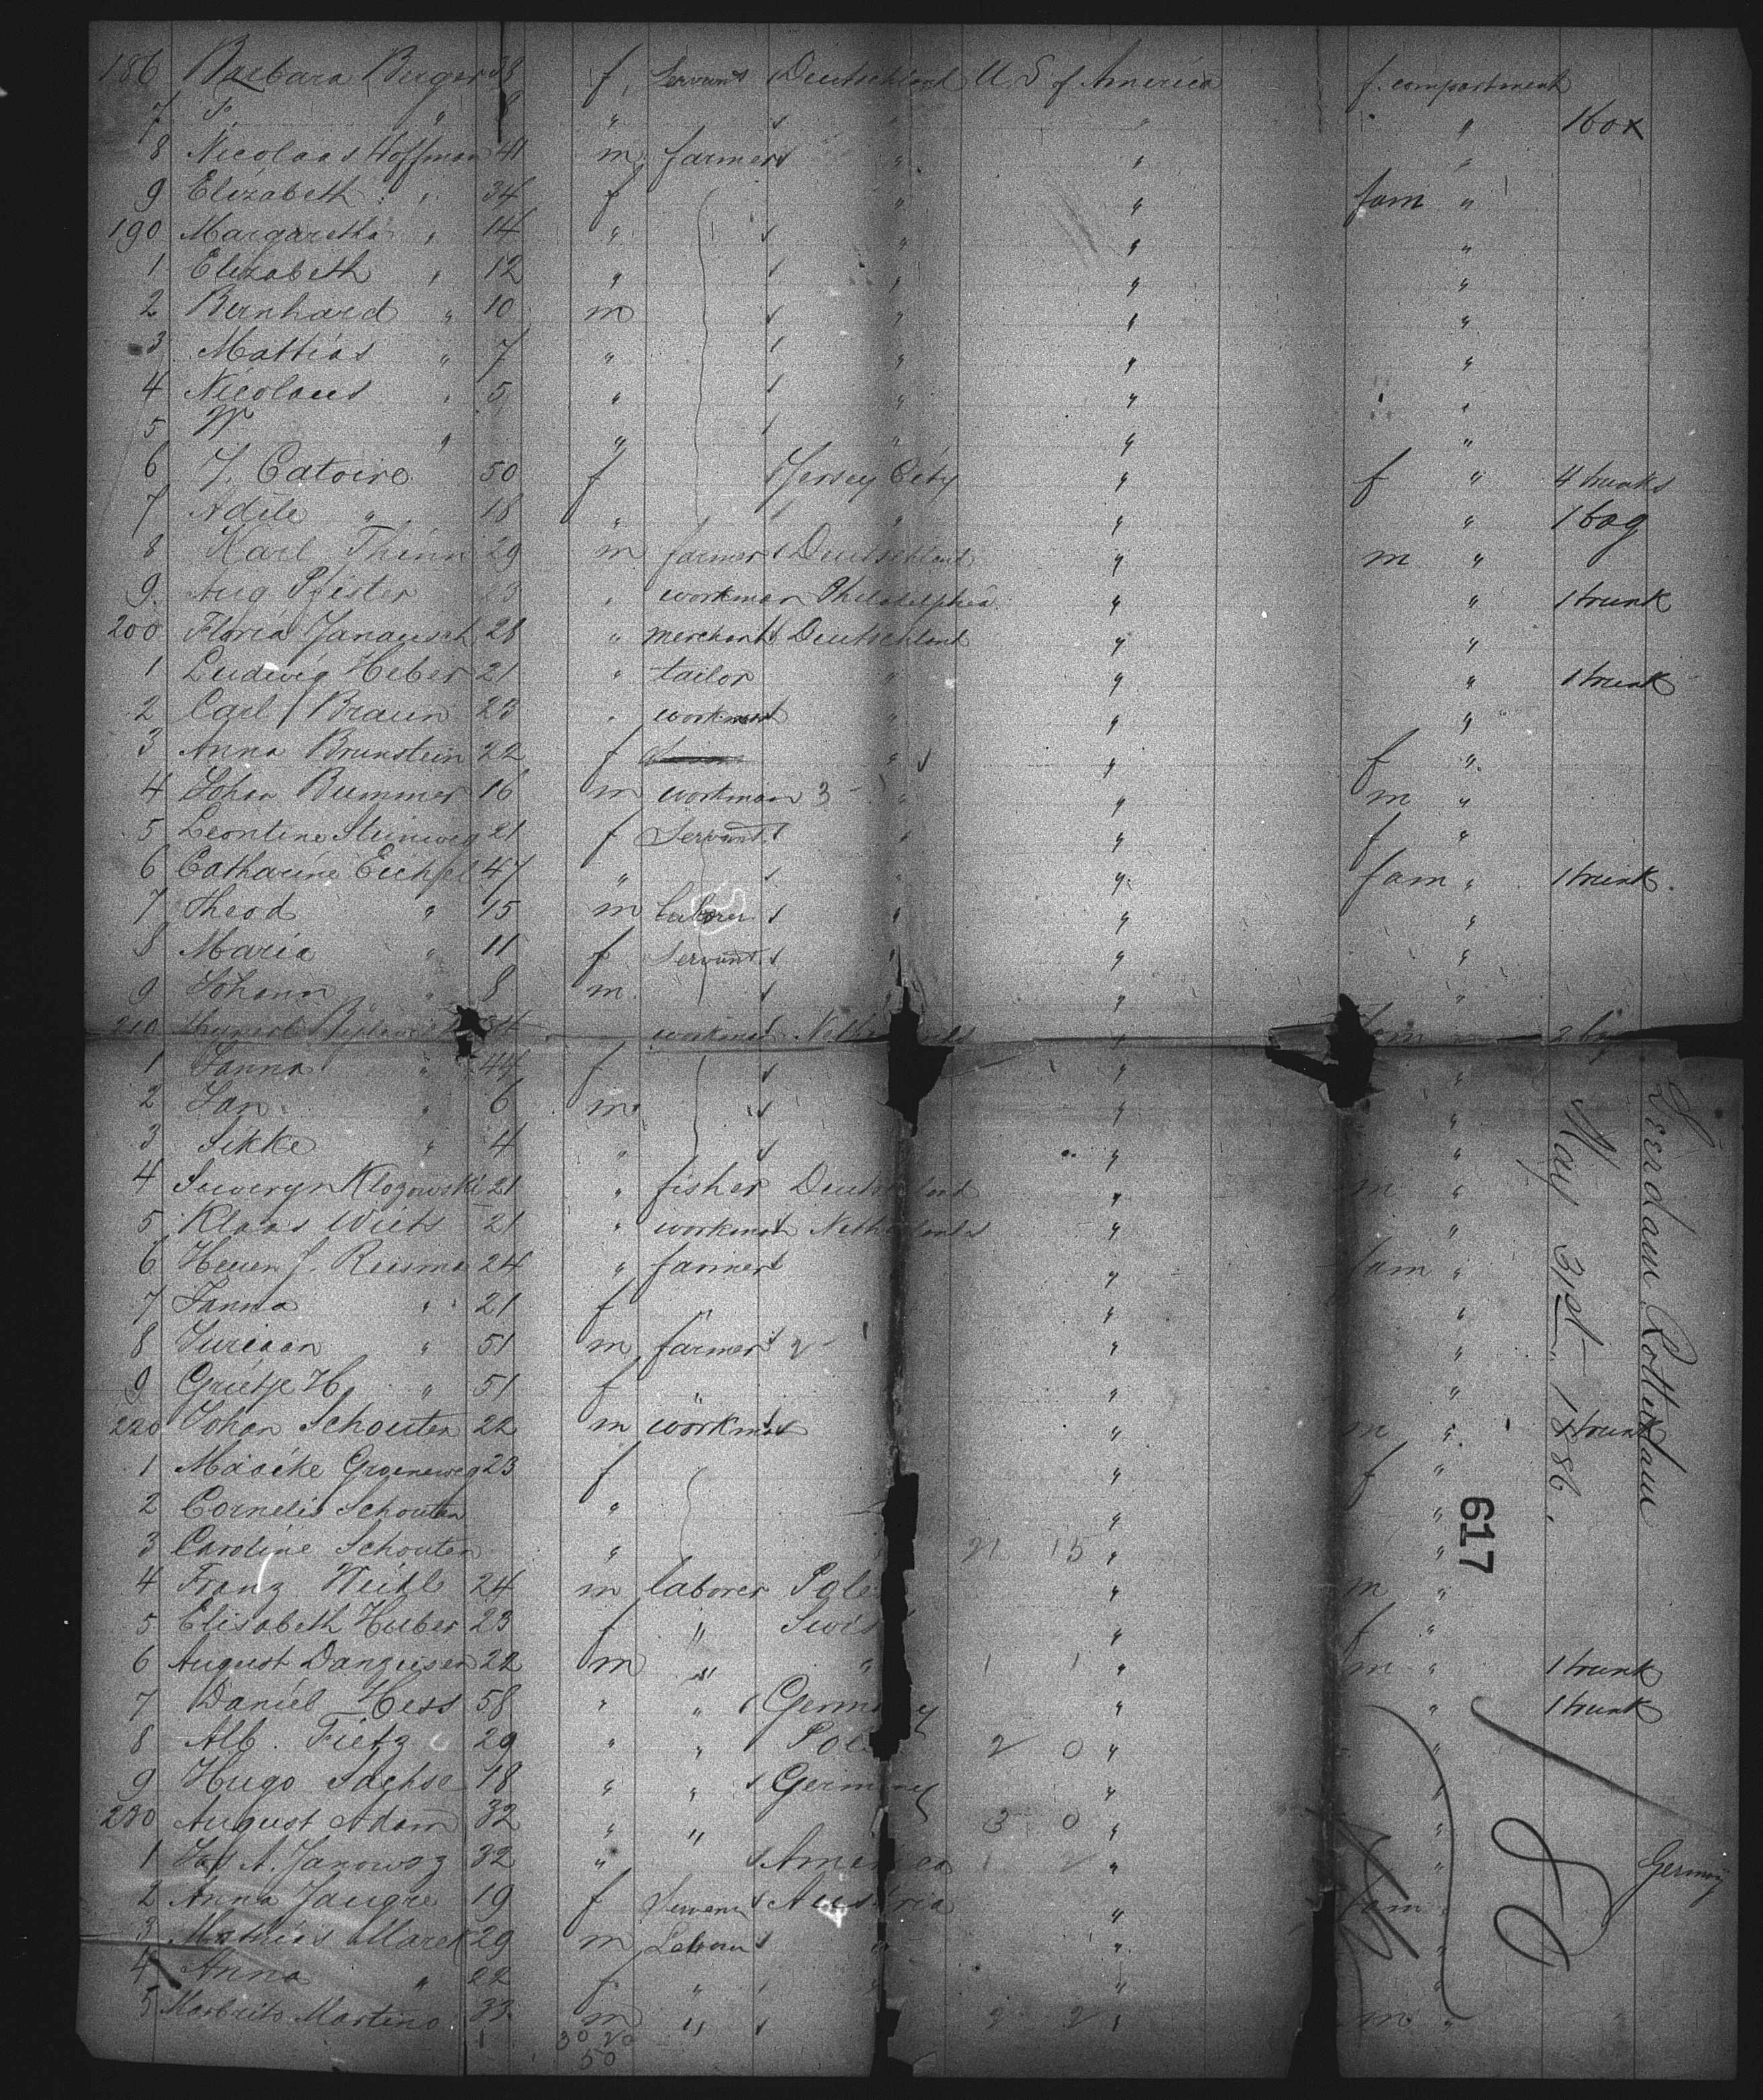 186 Barbara Berger 38 f Servant Deutschland U S of America f. compartment
7 S. " 9 " " " " 1 box
8 Nicolaas Hoffman 41 m farmer " " "
9 Elizabeth " 34 f " " fam "
190 Margaretha " 14 " " " "
1 Elizabeth " 12 " " " "
2 Bernhard " 10 m " " "
3 Mattias " 7 " " " "
4 Nicolaus " 5 " " " "
5 W " " " " "
6 J. Catoire 50 f Jersey City " f " 4 trunks
7 Adèle " 18 " " " " 1 bag
8 Karl Thinn 29 m farmer Deutschland " m "
9 Aug Pfister 23 " workman Philadelphia " " 1 trunk
200 Floria Janausch 28 " merchant Deutschland " "
1 Ludwig Heber 21 " tailor " " " 1 trunk
2 Carl Braun 23 " workman " " "
3 Anna Brunstein 22 f " " f "
4 Johan Bummer 16 m workman 3 " " m "
5 Leontine Steinweg 21 f Servant " " f "
6 Catharine Eichel 47 " " " fam " 1 trunk.
7 Theod " 15 m laborer " " "
8 Maria " 11 f Servant " " "
9 Johann " 8 m " " "
210 34 workman Netherlands " fam 2 bg
1 Janna " 44 f " "
2 Jan " 6 m " "
3 Sikke " 4 " " "
4 Seweryn Klozowski 21 " fisher Deutschland " m "
5 Klaas Wiets 21 " workman Netherlands " "
6 J. Reisma 24 " farmer " fam "
7 Janna " 21 f " " "
8 Juriaan " 51 m farmer 2 " "
9 Grietje H. " 51 f " " "
220 Johan Schouten 22 m workman " m " 1 trunk
1 Maaike Groeneweg 23 f " f "
2 Cornelis Schouten " " "
3 Caroline Schouten " 21 15 " "
4 Franz Weihl 24 m laborer Pole " m "
5 Elisabeth Huber 23 f " Swis " f "
6 August Danzeisen 22 m " " 1 1 " m " 1 trunk
7 Daniel Hess 58 " " Germany " " 1 trunk
8 Alb. Fietz 29 " " Pole 2 0 " "
9 Hugo Sachse 18 " " Germany " "
230 August Adam 32 " " 3 0 " "
1 A. Janowsz 32 " America 1 2 " "
2 Anna Jaugre 19 f Servant Austria " fam "
3 Mathies Marek 29 m Laborer " " "
4 Anna " 22 f " " " "
5 Martino 33 m " 2 2 " m "
1 30 20
50
Leerdam Rotterdam
May 31st 1886.
617
Germany